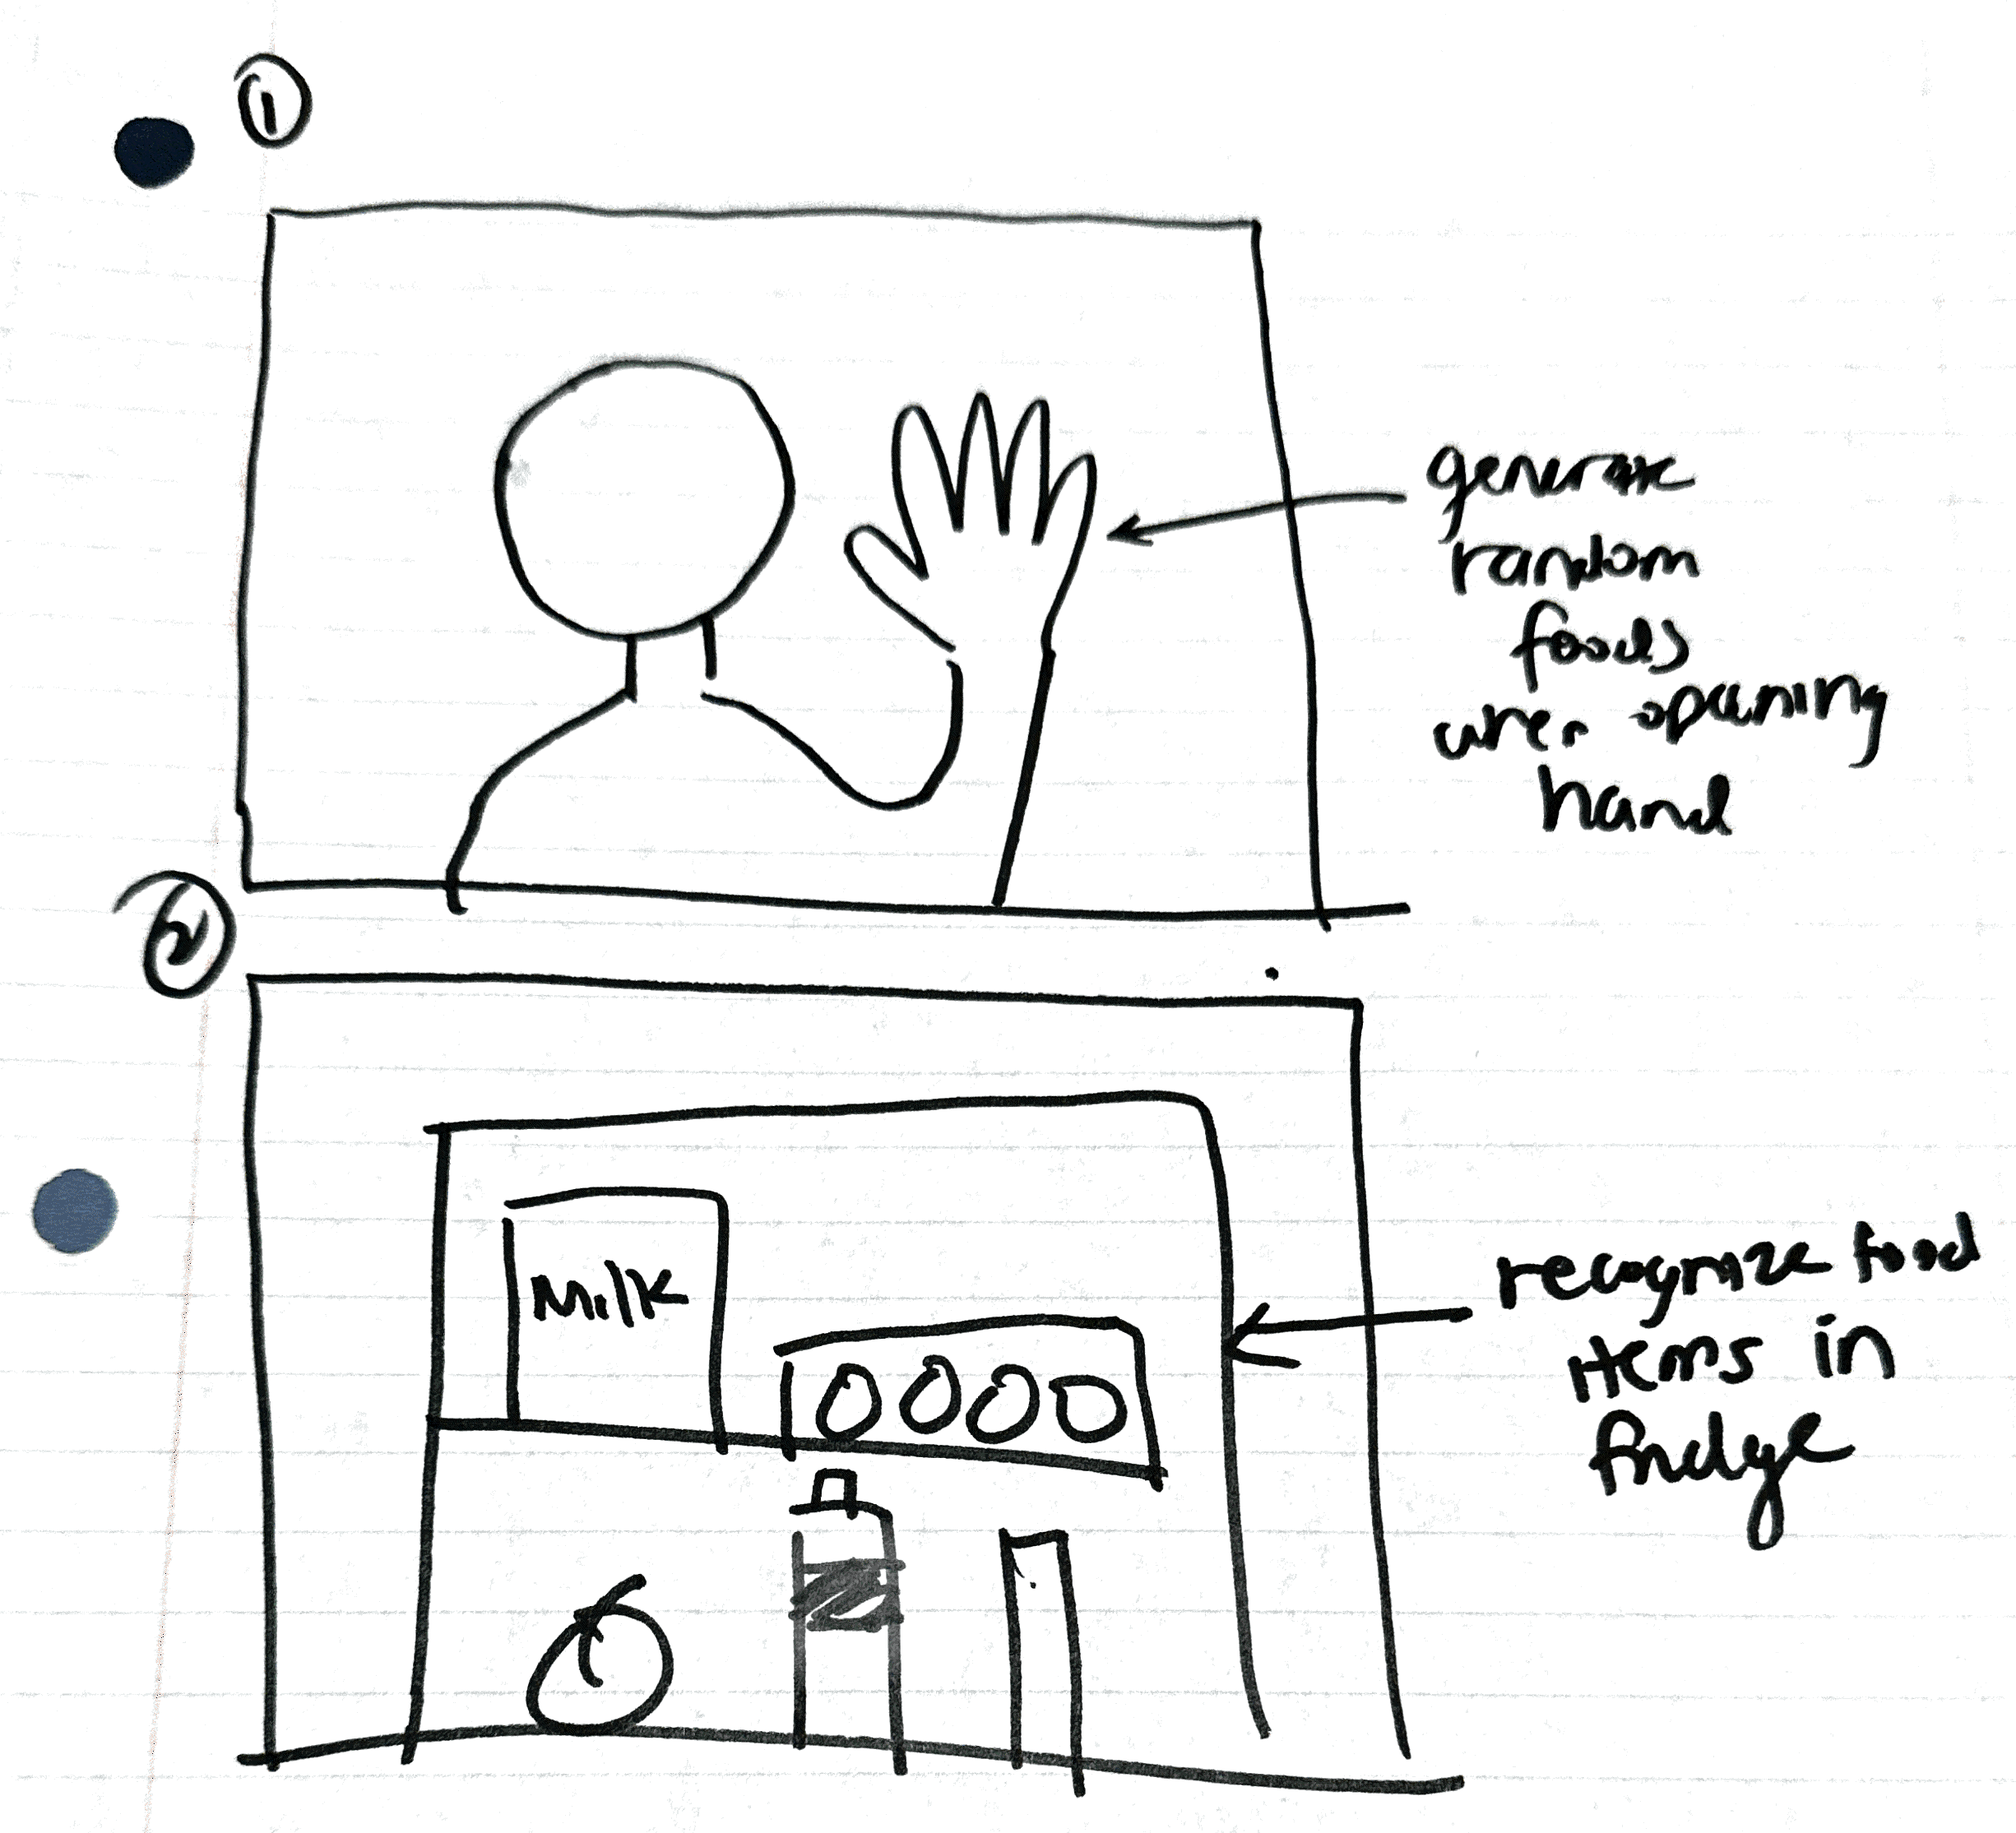 1
generate
random
foods
when opening
hand
2
Milk
recognize food
items in
fridge